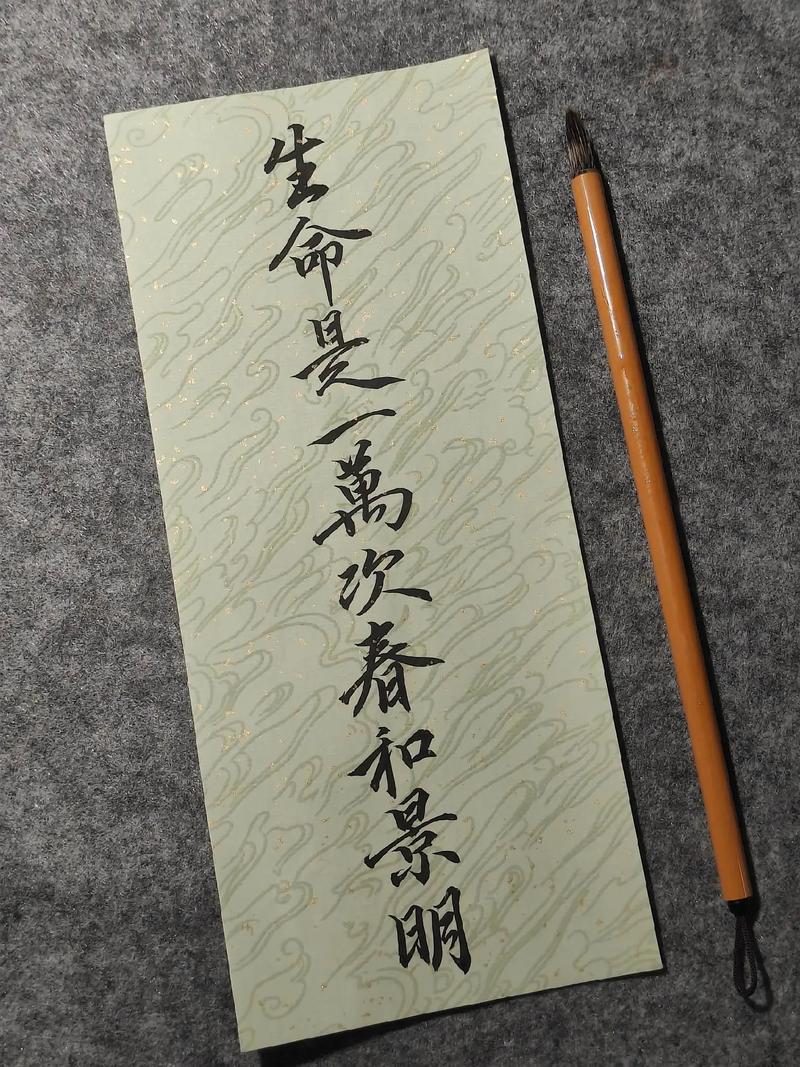 生命是一萬次春和景明